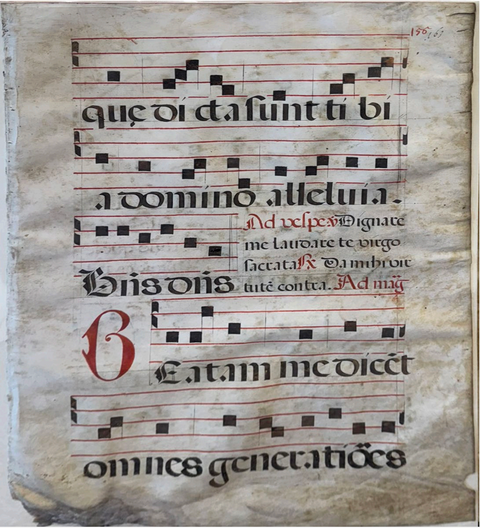 156
quę dicta sunt tibi
a domino alleluia.
Ad vesperꝰ Dignare
me laudare te virgo
sacrata ℟ Da mihi vir
Bn̄s dn̄s tutē contra. Ad mag̃
BEatam me dicēt
omnes generatiōes